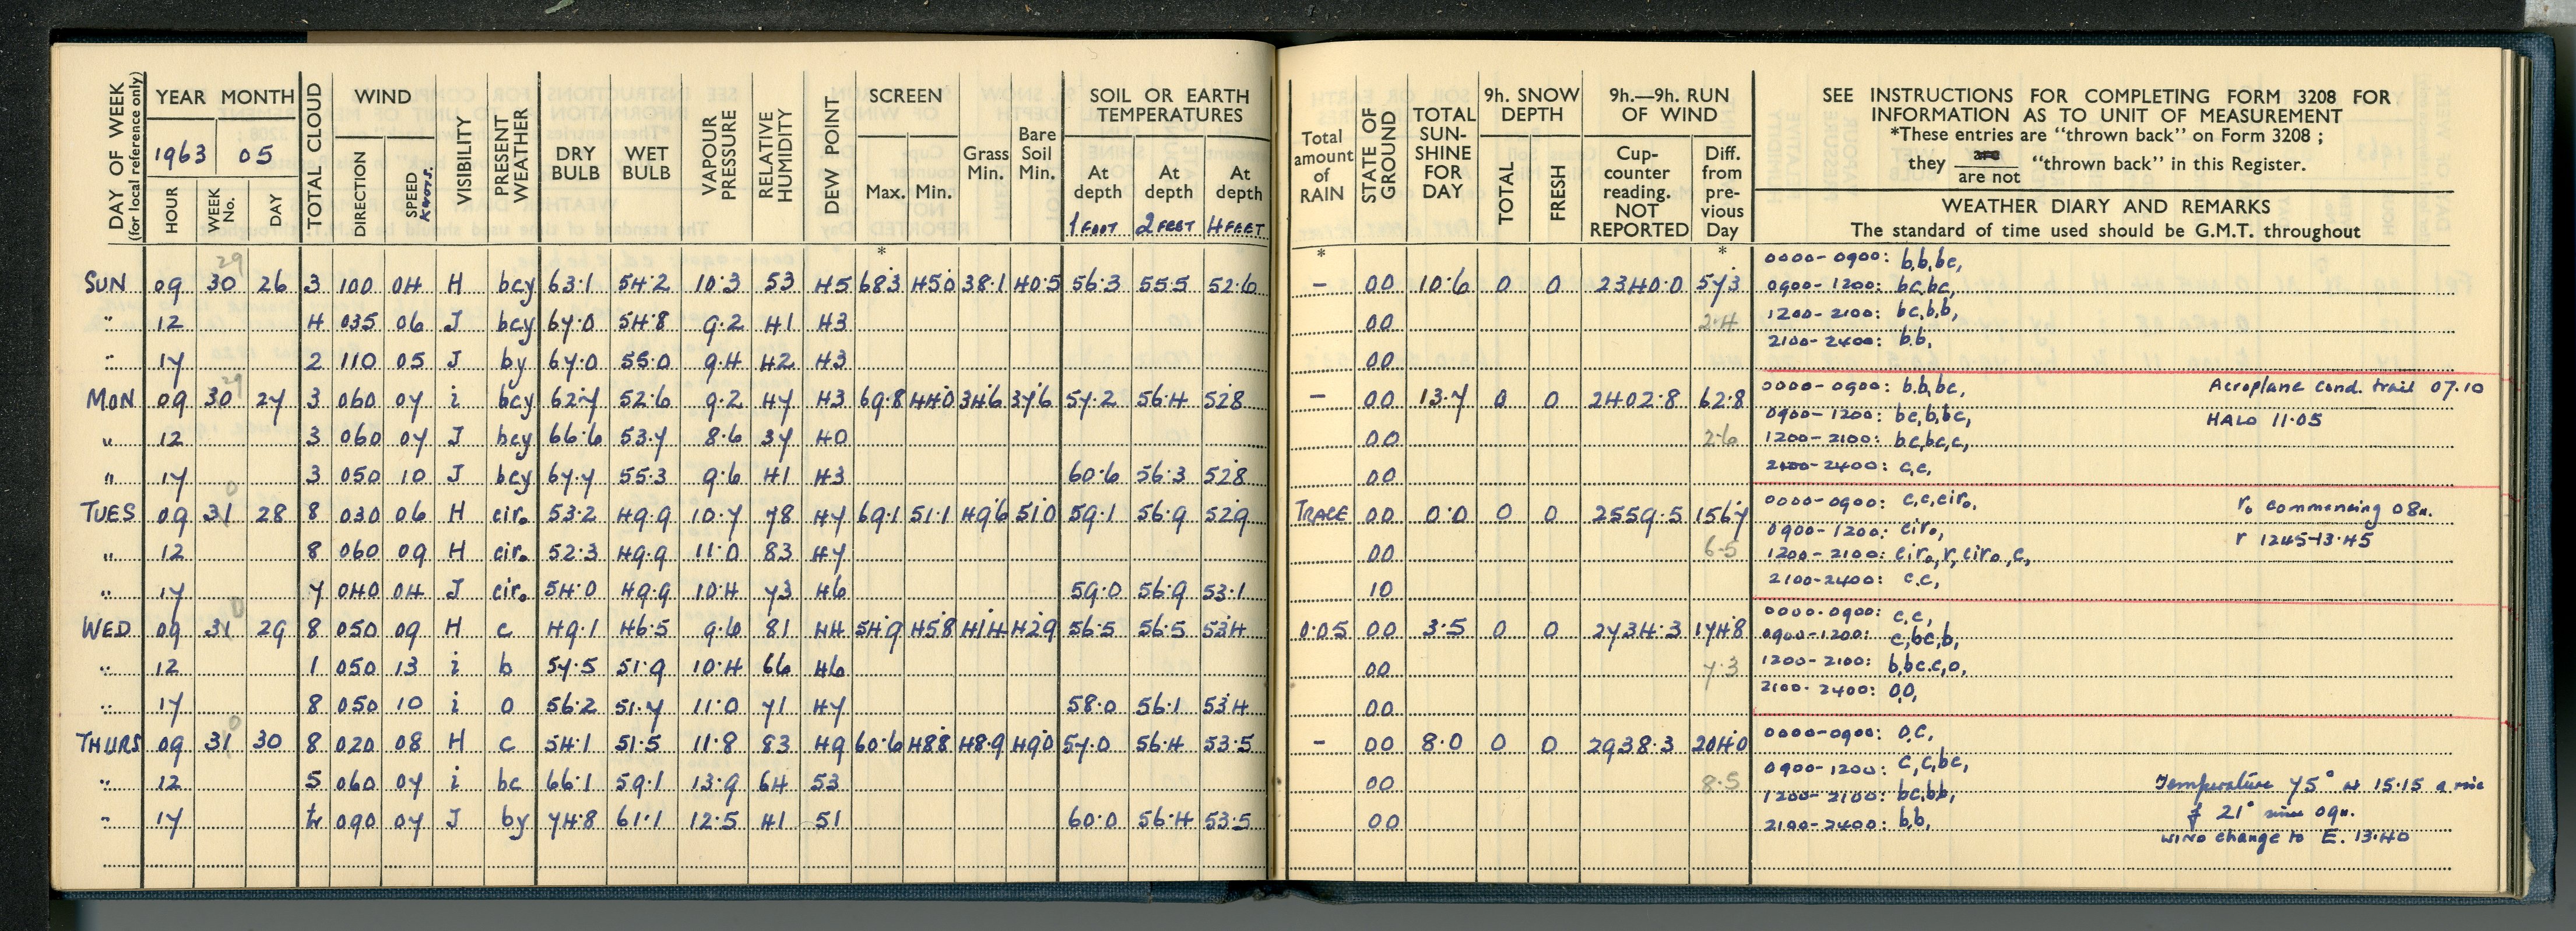 DAY OF WEEK (for local reference only)
YEAR MONTH
1963 05
HOUR WEEK No. DAY
TOTAL CLOUD
WIND
DIRECTION SPEED KNOTS.
VISIBILITY
PRESENT WEATHER
DRY BULB
WET BULB
VAPOUR PRESSURE
RELATIVE HUMIDITY
DEW POINT
SCREEN
Max. Min.
*
Grass Min.
Bare Soil Min.
SOIL OR EARTH TEMPERATURES
At depth 1 FOOT
At depth 2 FEET
At depth 4 FEET
29
SUN 09 30 26 3 100 04 H bcy 63.1 54.2 10.3 53 45 68.3 45.0 38.1 40.5 56.3 55.5 52.6
" 12 4 035 06 J bcy 67.0 54.8 9.2 41 43
" 17 2 110 05 J by 67.0 55.0 9.4 42 43
29
MON 09 30 27 3 060 07 i bcy 62.7 52.6 9.2 47 43 69.8 44.0 34.6 37.6 57.2 56.4 52.8
" 12 3 060 07 J bcy 66.6 53.7 8.6 37 40
" 17 3 050 10 J bcy 67.7 55.3 9.6 41 43 60.6 56.3 52.8
0
TUES 09 31 28 8 030 06 H cir₀ 53.2 49.9 10.7 78 47 69.1 51.1 49.6 51.0 59.1 56.9 52.9
" 12 8 060 09 H cir₀ 52.3 49.9 11.0 83 47
" 17 7 040 04 J cir₀ 54.0 49.9 10.4 73 46 59.0 56.9 53.1
0
WED 09 31 29 8 050 09 H c 49.1 46.5 9.6 81 44 54.9 45.8 41.4 42.9 56.5 56.5 53.4
" 12 1 050 13 i b 57.5 51.9 10.4 66 46
" 17 8 050 10 i o 56.2 51.7 11.0 71 47 58.0 56.1 53.4
0
THURS 09 31 30 8 020 08 H c 54.1 51.5 11.8 83 49 60.6 48.8 48.9 49.0 57.0 56.4 53.5
" 12 5 060 07 i bc 66.1 59.1 13.9 64 53
" 17 090 07 J by 74.8 61.1 12.5 41 51 60.0 56.4 53.5
Total amount of RAIN
*
STATE OF GROUND
TOTAL SUN-SHINE FOR DAY
9h. SNOW DEPTH
TOTAL FRESH
9h.—9h. RUN OF WIND
Cup-counter reading. NOT REPORTED
Diff. from pre-vious Day
*
SEE INSTRUCTIONS FOR COMPLETING FORM 3208 FOR
INFORMATION AS TO UNIT OF MEASUREMENT
*These entries are "thrown back" on Form 3208 ;
they are / are not "thrown back" in this Register.
WEATHER DIARY AND REMARKS
The standard of time used should be G.M.T. throughout
0000-0900: b,b,bc,
– 00 10.6 0 0 2340.0 57.3 0900-1200: bc,bc,
00 2.4 1200-2100: bc,b,b,
00 2100-2400: b,b,
0000-0900: b,b,bc, Aeroplane cond. trail 07.10
– 00 13.7 0 0 2402.8 62.8 0900-1200: bc,b,bc, HALO 11.05
00 2.6 1200-2100: bc,bc,c,
00 2100-2400: c,c,
0000-0900: c,c,cir₀, r₀ commencing 08h.
TRACE 00 0.0 0 0 2559.5 156.7 0900-1200: cir₀, r 1245-13.45
00 6.5 1200-2100: cir₀,r,cir₀,c,
10 2100-2400: c,c,
0000-0900: c,c,
0.05 00 3.5 0 0 2734.3 174.8 0900-1200: c,bc,b,
00 7.3 1200-2100: b,bc,c,o,
00 2100-2400: o,o,
– 00 8.0 0 0 2938.3 204.0 0000-0900: o,c,
0900-1200: c,c,bc,
00 8.5 1200-2100: bc,b,b, Temperature 75° at 15.15 a rise
00 2100-2400: b,b, of 21° since 09h.
WIND change to E. 13.40